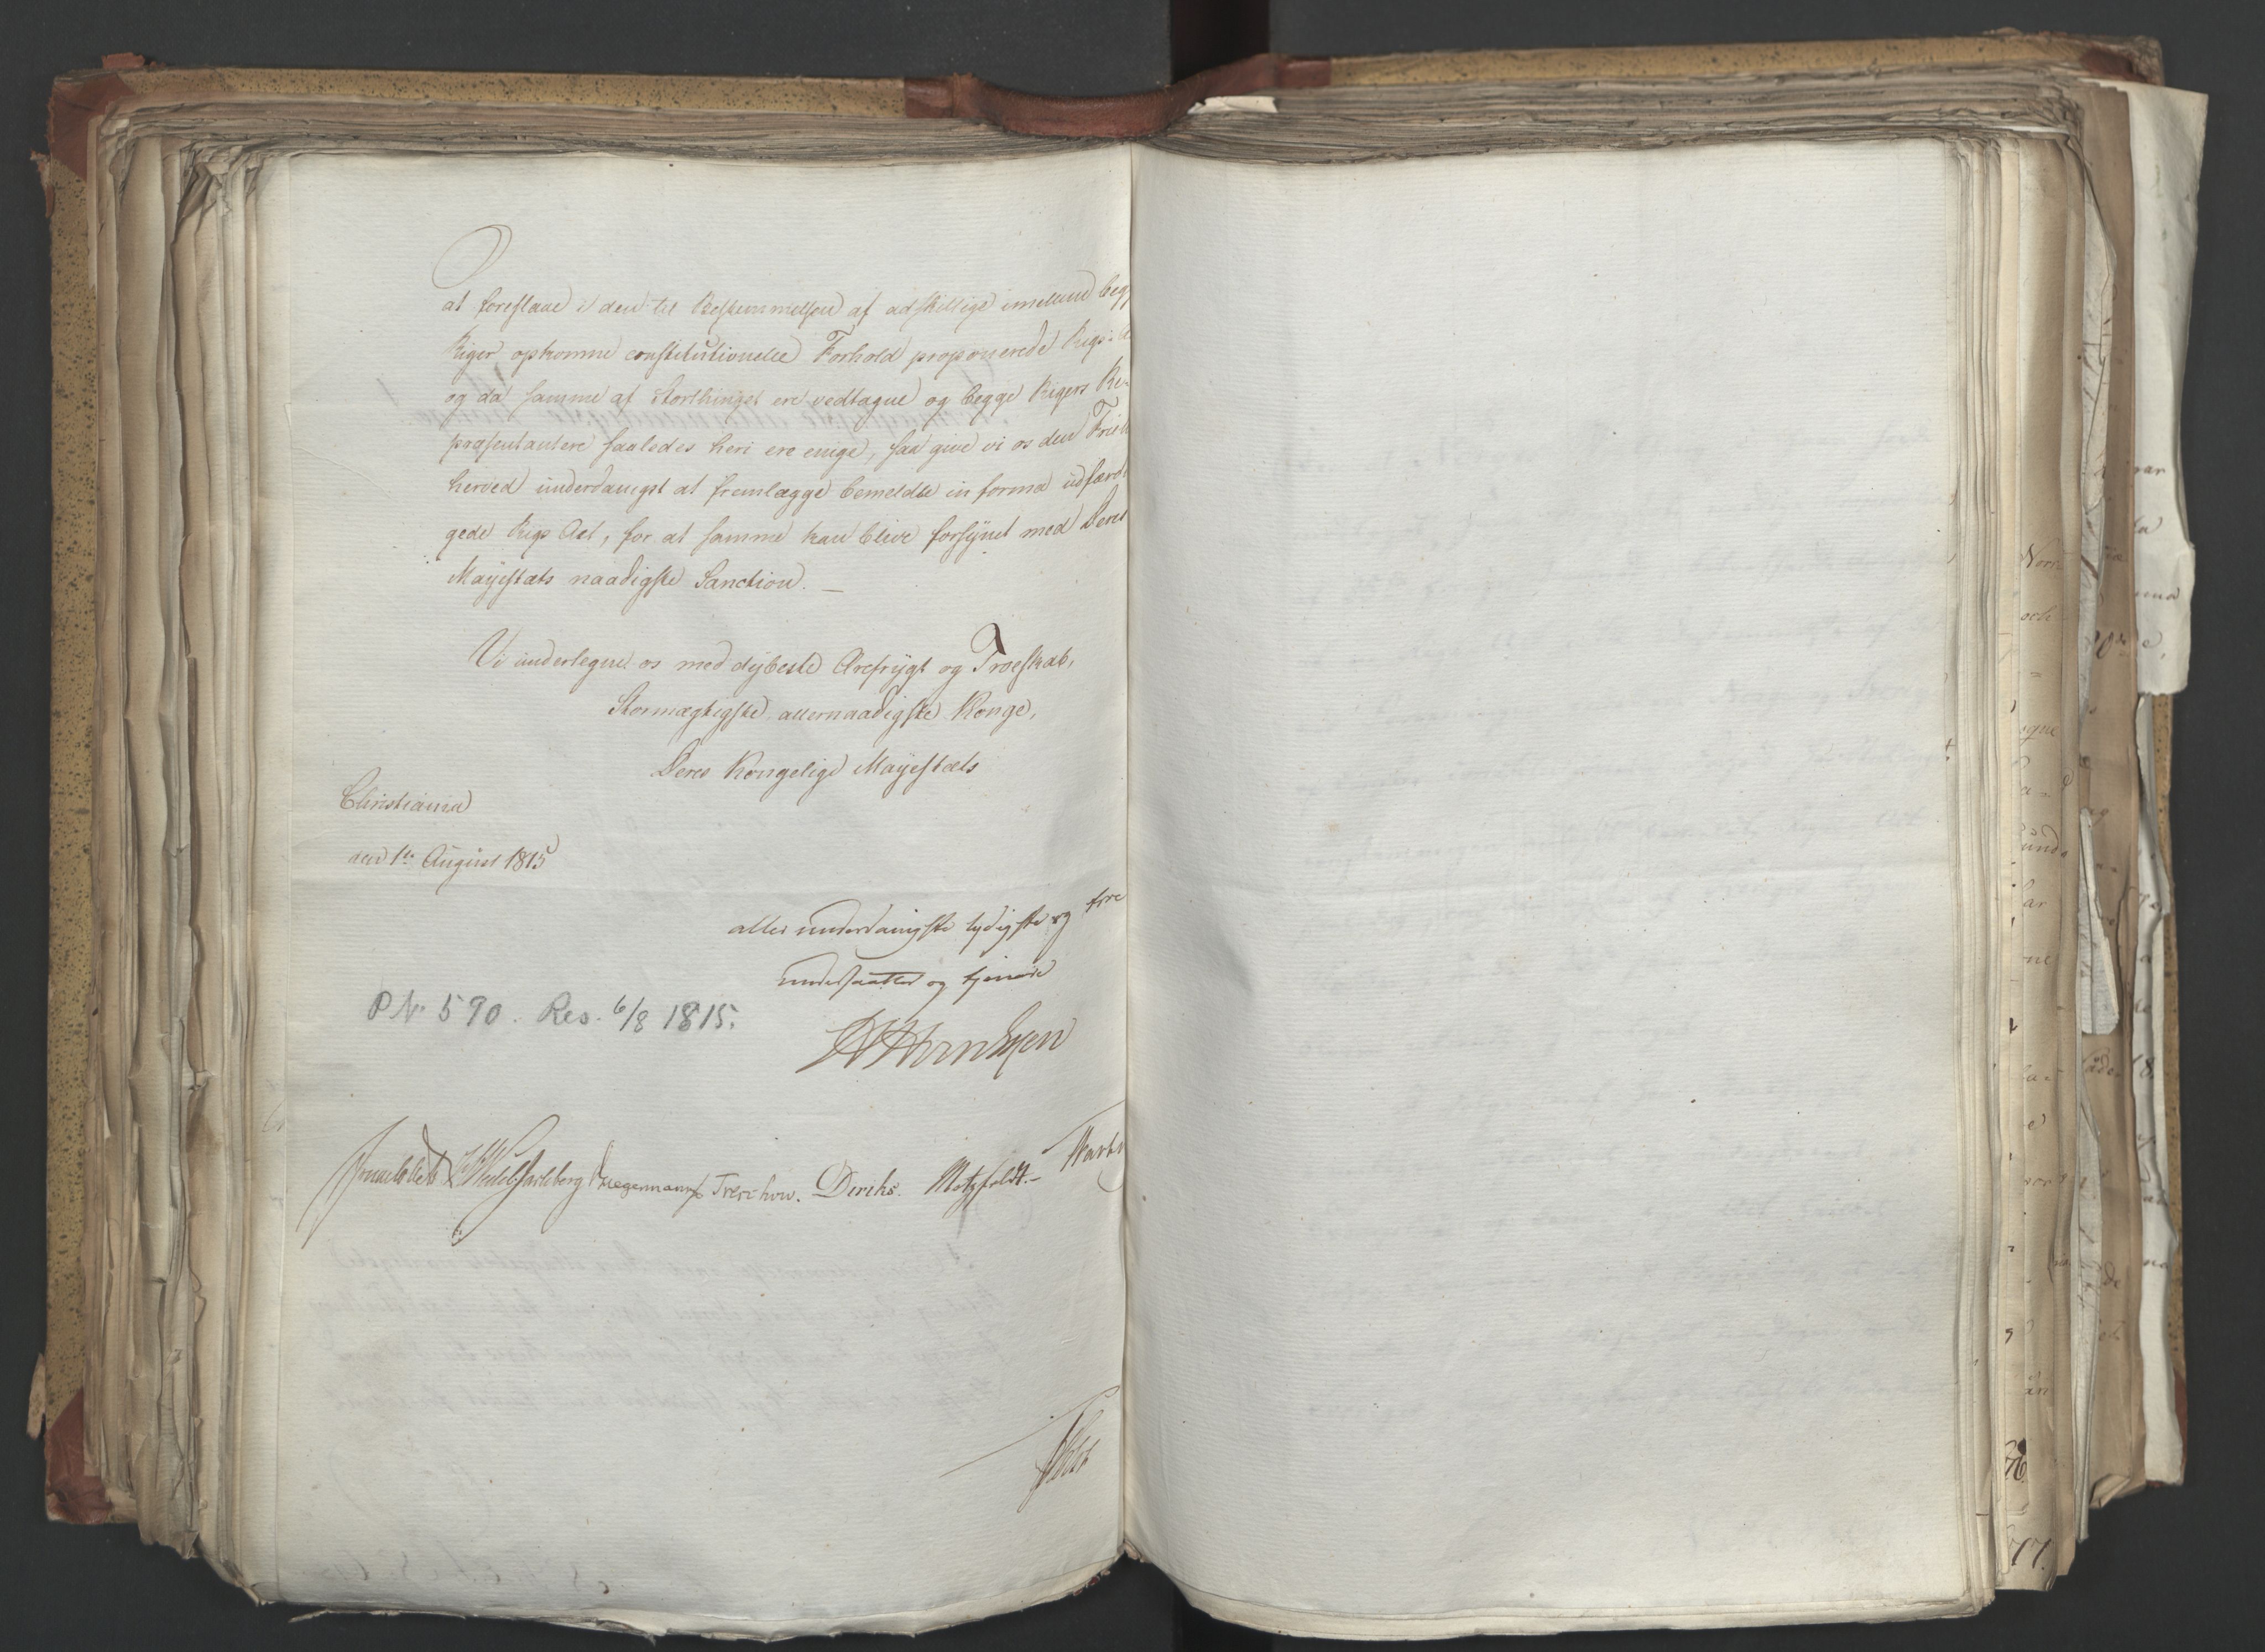 at foreslaae i den til Bestemmelsen af adskillige imellem beg
Riger opkomne constitutionelle Forhold proponerede Rigs-A
og da samme af Storthinget ere vedtagne og begge Rigers Re-
præsentantere saaledes heri ere enige, saa give vi os den Frie
herved underdanigst at fremlægge bemeldte in forma udfærdi
gede Rigs Act, for at samme kan blive forsynet med Deres
Mayestæts naadigste Sanction. —
Vi underlegne os med dybeste Ærefrygt og Troeskab,
Stormægtigste allernaadigste Konge,
Deres Kongelige Mayestæts
Christiania
den 1te August 1815
aller underdanigste lydigste og troe
undersaatter og tjenere
P N. 590. Res. 6/8 1815.
Sommerhielm Wedel Jarlsberg Hegermann Treschow. Diriks. Motzfeldt.
Holst